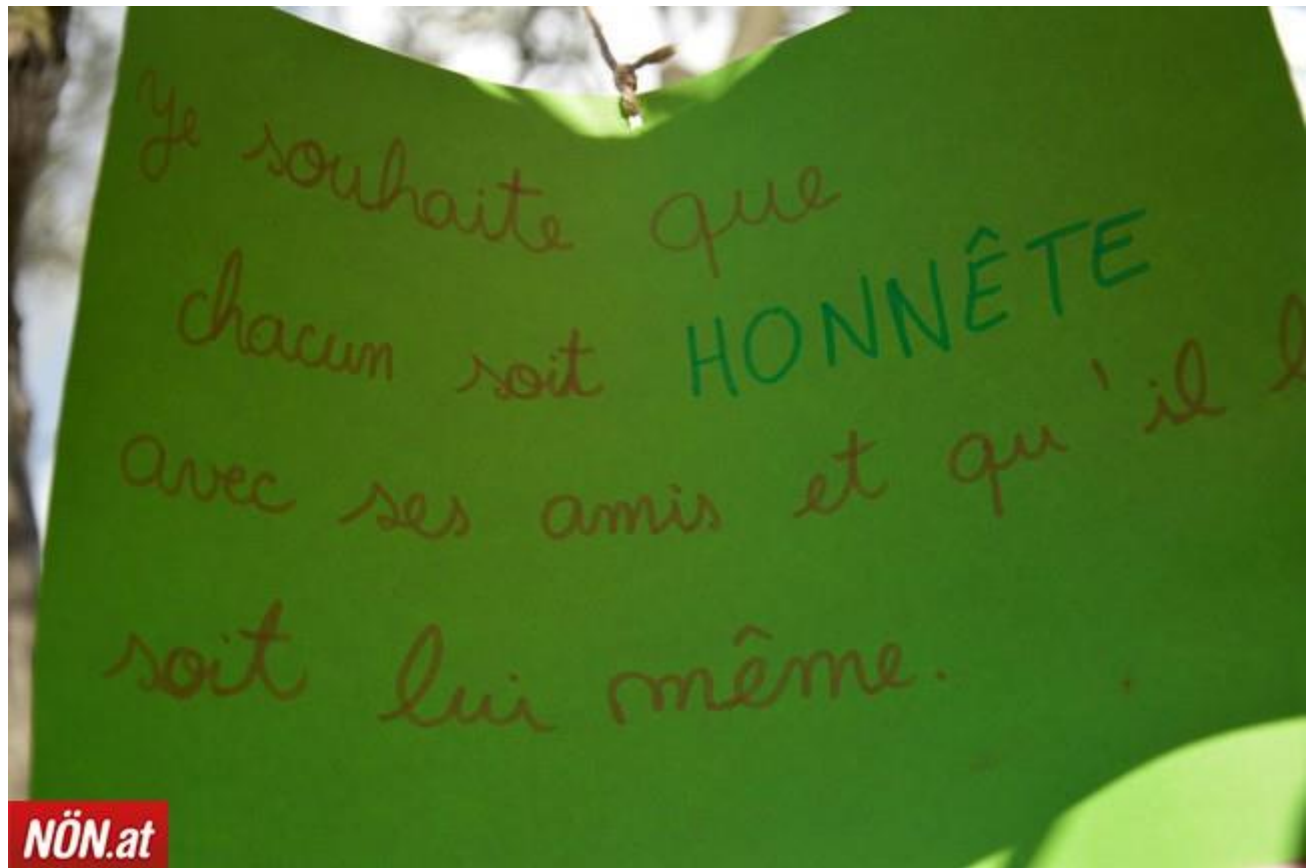 Je souhaite que
chacun soit HONNÊTE
avec ses amis et qu'il
soit lui même.
NÖN.at